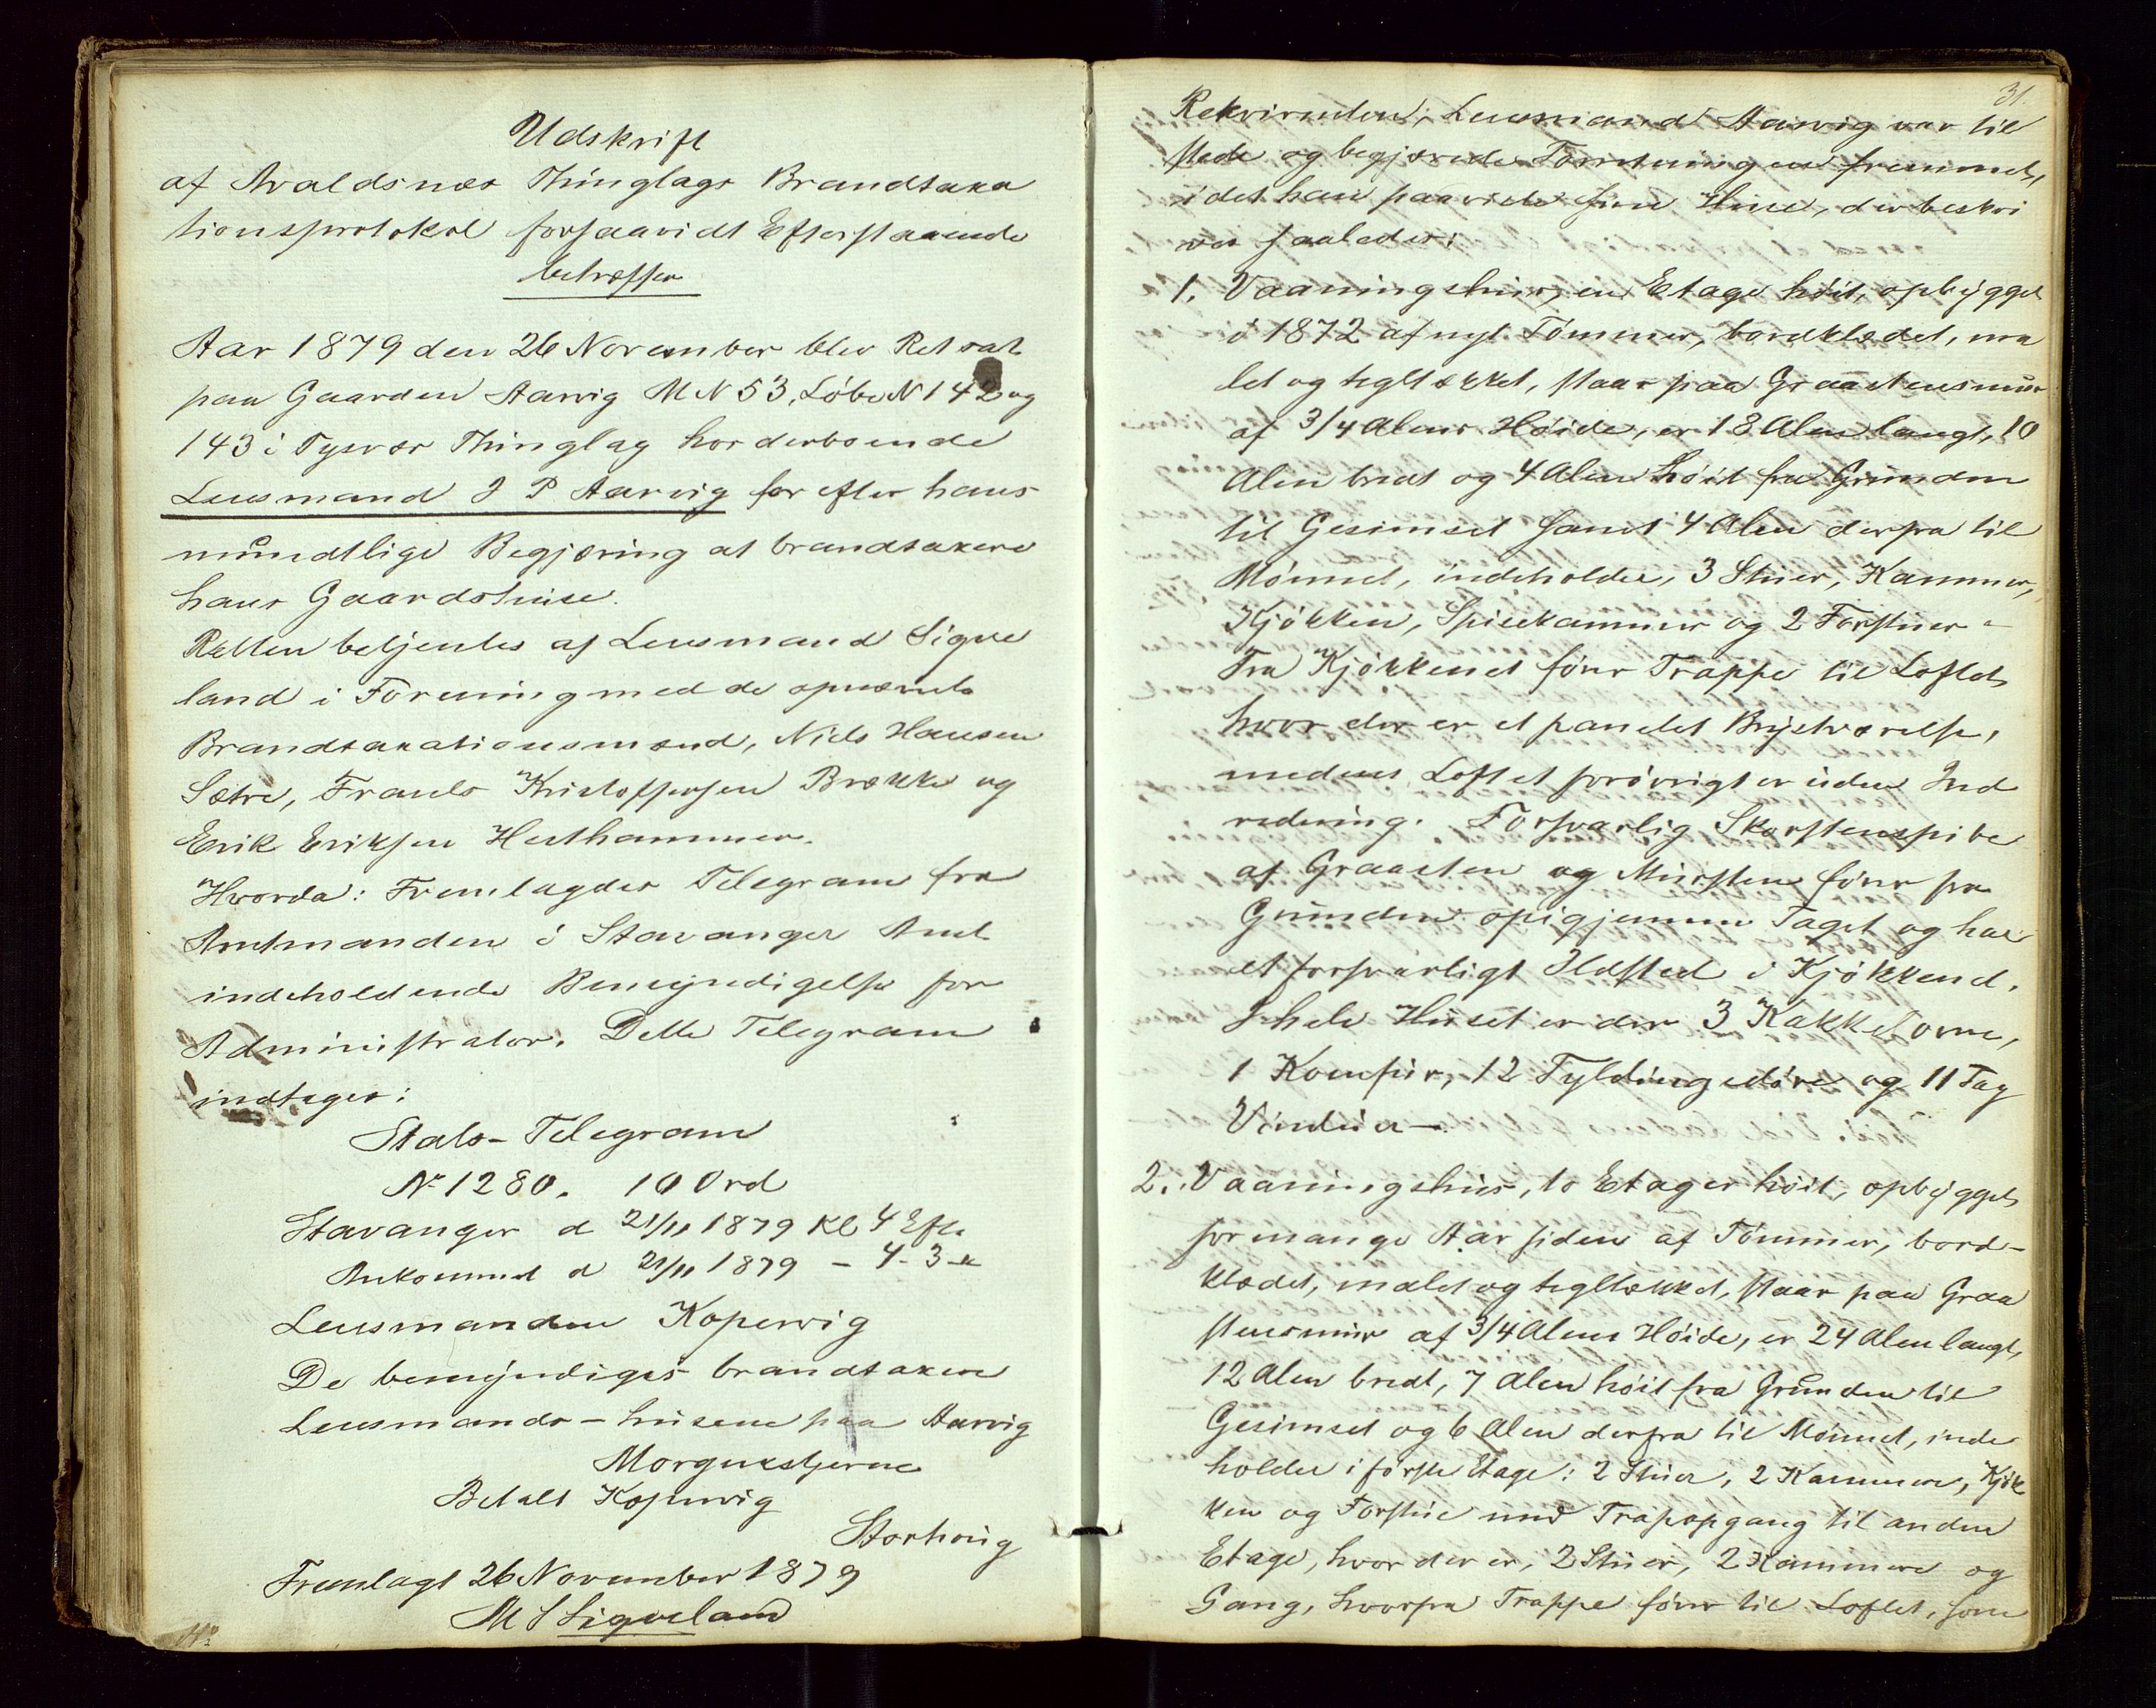 Udskrift
af Avaldsnes Thinglags Brandtaxa
tionsprotokol forsaavidt Efterstaaende
betræffer
Aar 1879 den 26 November blev Ret sat
paa Gaarden Aarvig M N 53, Løbe N 142 og
143 i Tysvær Thinglag hos derboende
Lensmand J P Aarvig for efter hans
mundtlige Begjæring at brandtaxere
hans Gaardshuse.
Retten betjentes af Lensmand Sigve
land i Forening med de opnævnte
Brandtaxationsmænd, Niels Hansen
Sætre, Frants Kristoffersen Brække og
Erik Eriksen Hesthammer.
Hvorda: Fremlagdes Telegram fra
Amtmanden i Stavanger Amt
indeholdende Bemyndigelse for
Administrator. Dette Telegram
indtages:
Stats-Telegram
No 1280. 10 Ord
Stavanger d 21/11 1879 Kl 4 Eft.
Ankommet d 21/11 1879 - 4-3-
Lensmanden Kopervig
De bemyndiges brandtaxere
Lensmands-husene paa Aarvig
Morgenstjerne
Betalt Kopervig
Storhoug
Fremlagt 26 November 1879
M S Sigveland
31.
Rekvirenten, Lensmand Aarvig var til
stede og begjærede Forretningen fremmet,
idet han paaviste sine Huse, der beskri
ves saaledes:
1. Vaaningshus, en Etage høit, opbygget
i 1872 af nyt Tømmer, bordklædet, ma
let og tegltækket, staar paa Graastensmur
af 3/4 Alens Høide, er 18 Alen langt, 10
Alen bredt og 4 Alen høit fra Grunden
til Gesimset samt 4 Alen derfra til
Mønnet, indeholder, 3 Stuer, Kammer,
Kjøkken, Spisekammer og 2 Forstuer -
Fra Kjøkkenet fører Trappe til Loftet,
hvor der er et panelet Brystværelse,
medens Loftet forøvrigt er uden Ind
redning. Forsvarlig Skorstenspibe
af Graasten og Mursten fører fra
Grunden opigjennem Taget og har
et forsvarligt Ildsted i Kjøkkenet.
I hele Huset er der 3 Kakkelovne,
1 Komfur, 12 Fyldingsdøre og 11 Fag
Vinduer -
2. Vaaningshus, to Etager høit, opbygget
for mange Aar siden af Tømmer, bord-
klædet, malet og tegltækket, staar paa Graa
stensmur af 3/4 Alens Høide, er 24 Alen langt,
12 Alen bredt, 7 Alen høit fra Grunden til
Gesimset og 6 Alen derfra til Mønnet, inde
holder i første Etage: 2 Stuer, 2 Kammere, Kjøk
ken og Forstue med Trapopgang til anden
Etage, hvor der er, 2 Stuer, 2 Kammere og
Gang, hvorfra Trappe fører til Loftet, som